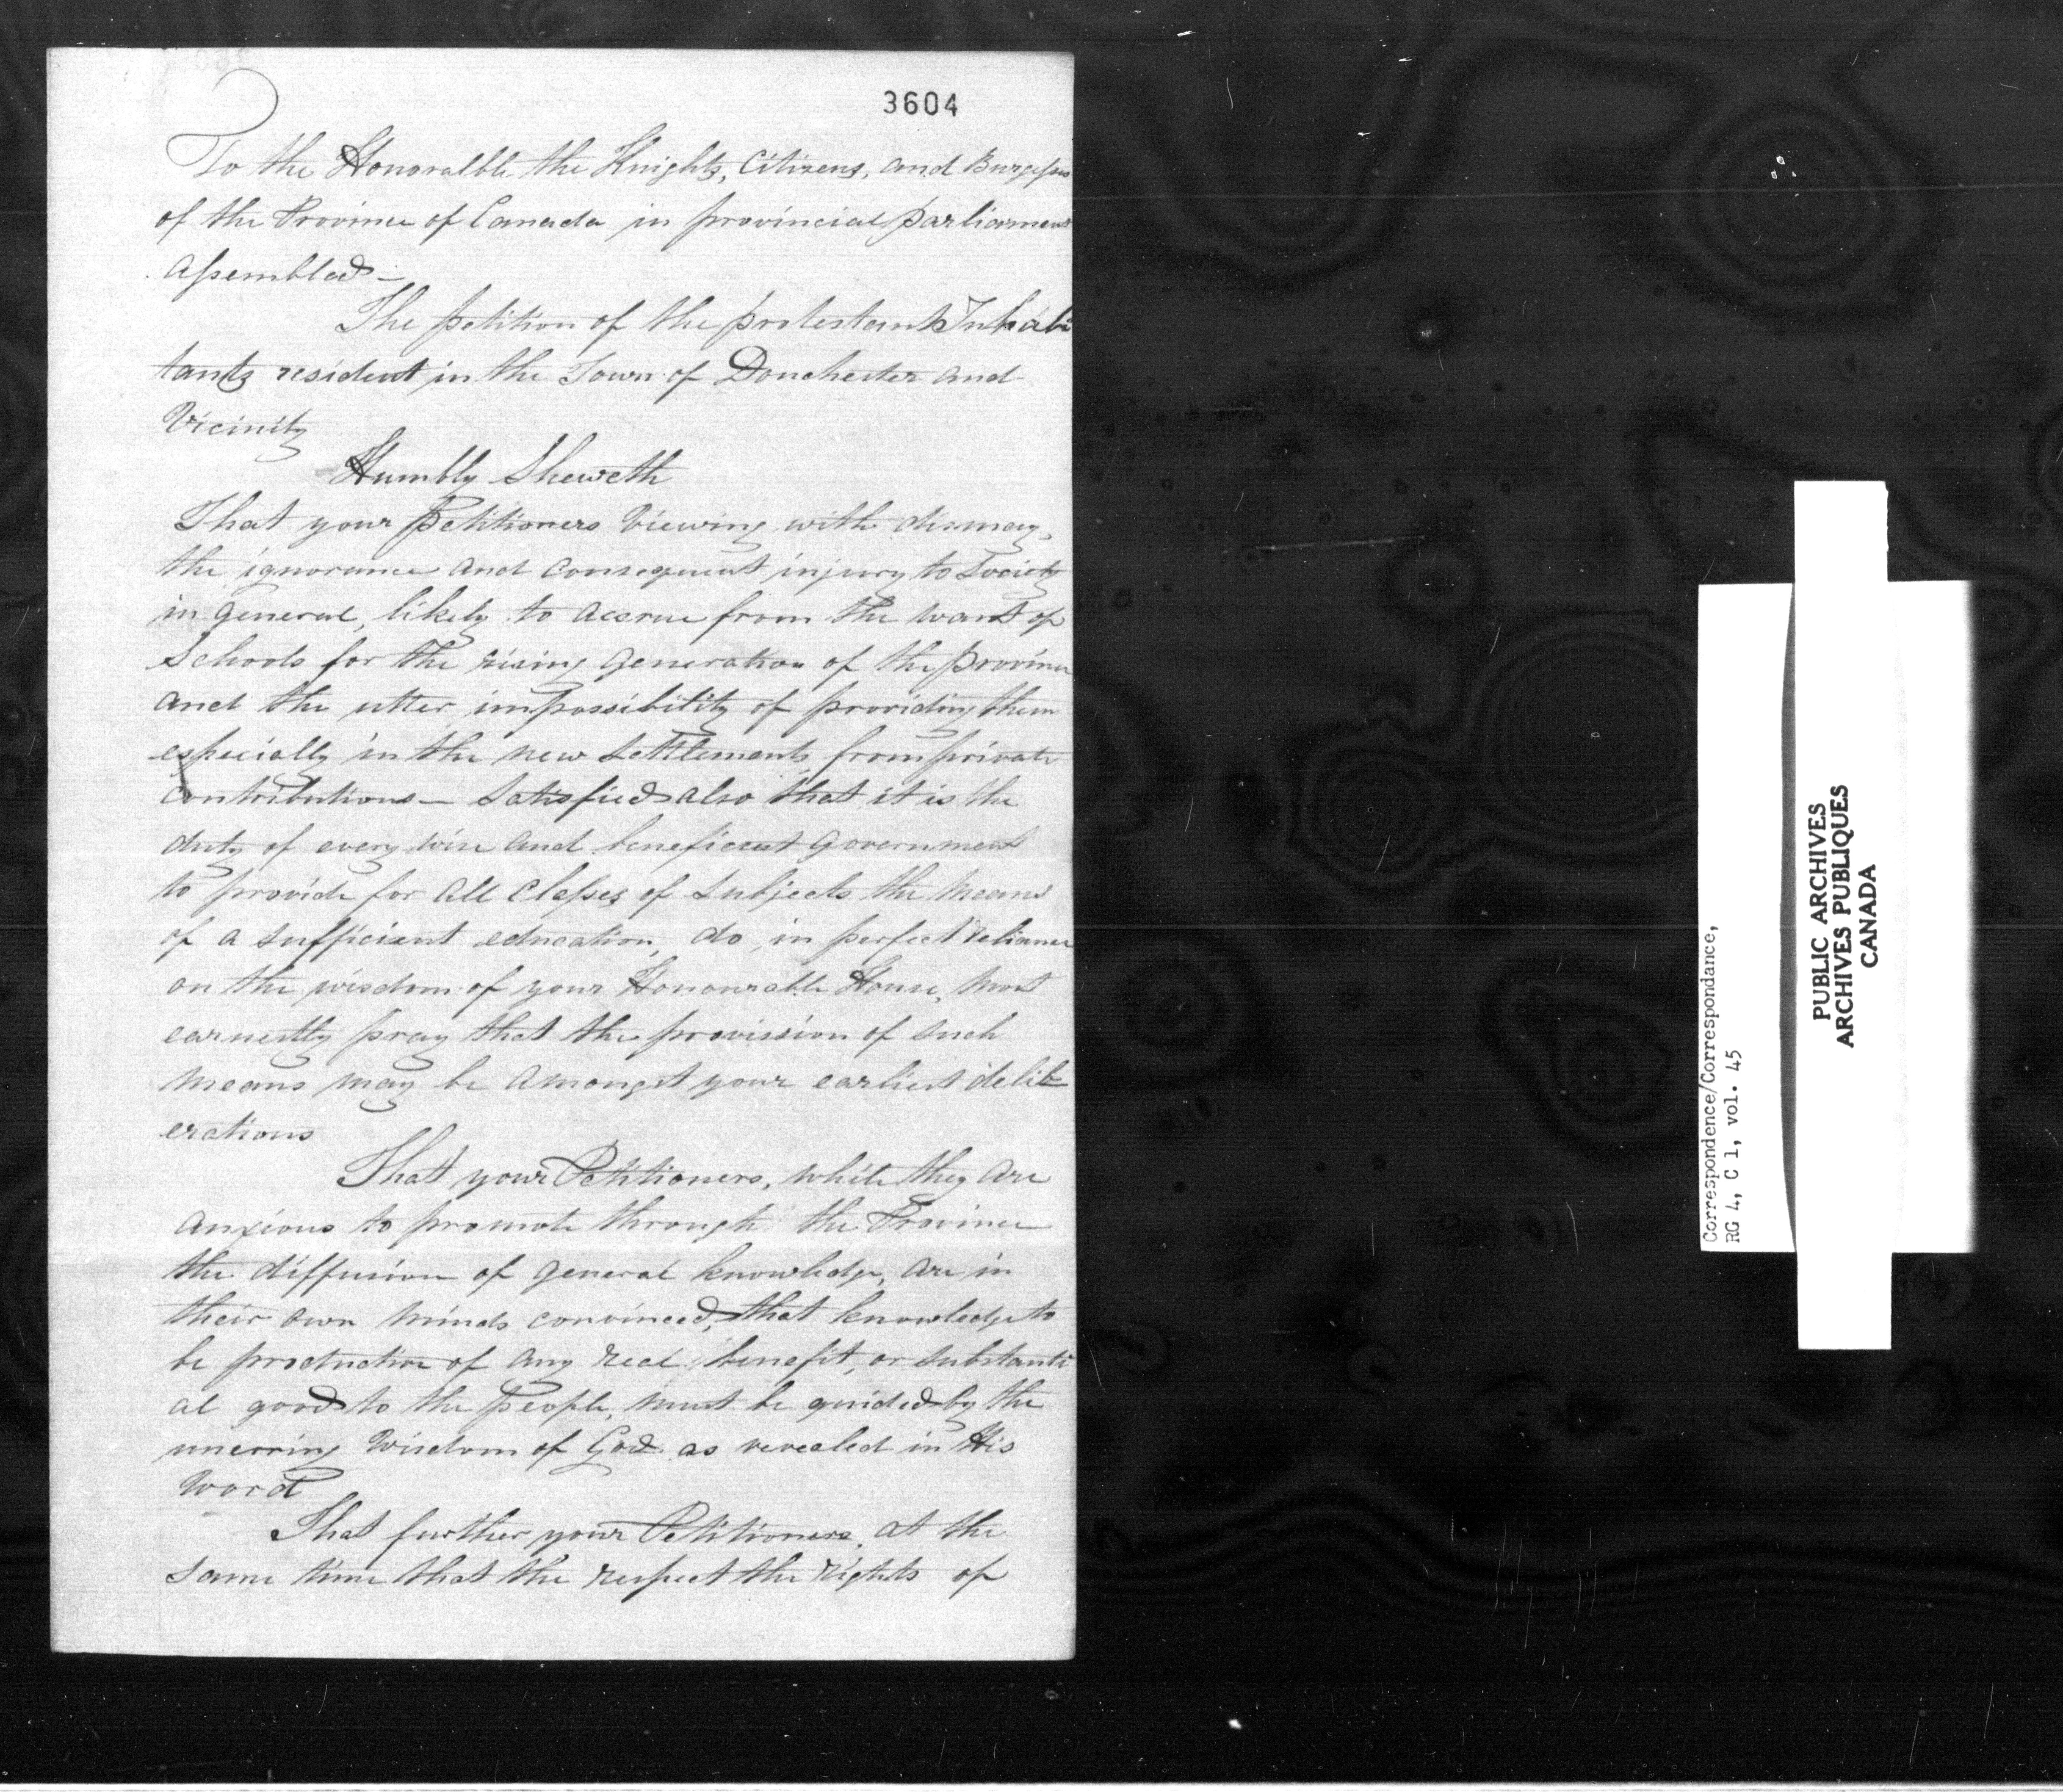 3604
To the Honoralble the Knights, Citizens, and Burgesses
of the Province of Canada in provincial parliament
Assembled –
The petition of the protestant Inhabi
tants resident in the Town of Dorchester and
Vicinity
Humbly Sheweth
That your Petitioners Viewing with dismay,
the ignorance and consequent injury to Society
in general, likely to accrue from the want of
Schools for the rising generation of the province
and the utter impossibility of providing them
especially in the new settlements from private
contributions – Satisfied also that it is the
duty of every wise and beneficent government
to provide for all classes of subjects the means
of a sufficient education, do, in perfect reliance
on the wisdom of your Honourable House, most
earnestly pray that the provission of such
means may be amongst your earliest delib
erations
That your Petitioners, while they are
anxious to promote through the Province
the diffusion of general knowledge, are in
their own minds convinced, that knowledge to
be productive of any real benefit, or substanti
al good to the People, must be guided by the
unerring Wisdom of God as revealed in His
Word
That further your Petitioners, at the
same time that the respect the rights of
Correspondence/Correspondance,
RG 4, C 1, vol. 45
PUBLIC ARCHIVES
ARCHIVES PUBLIQUES
CANADA